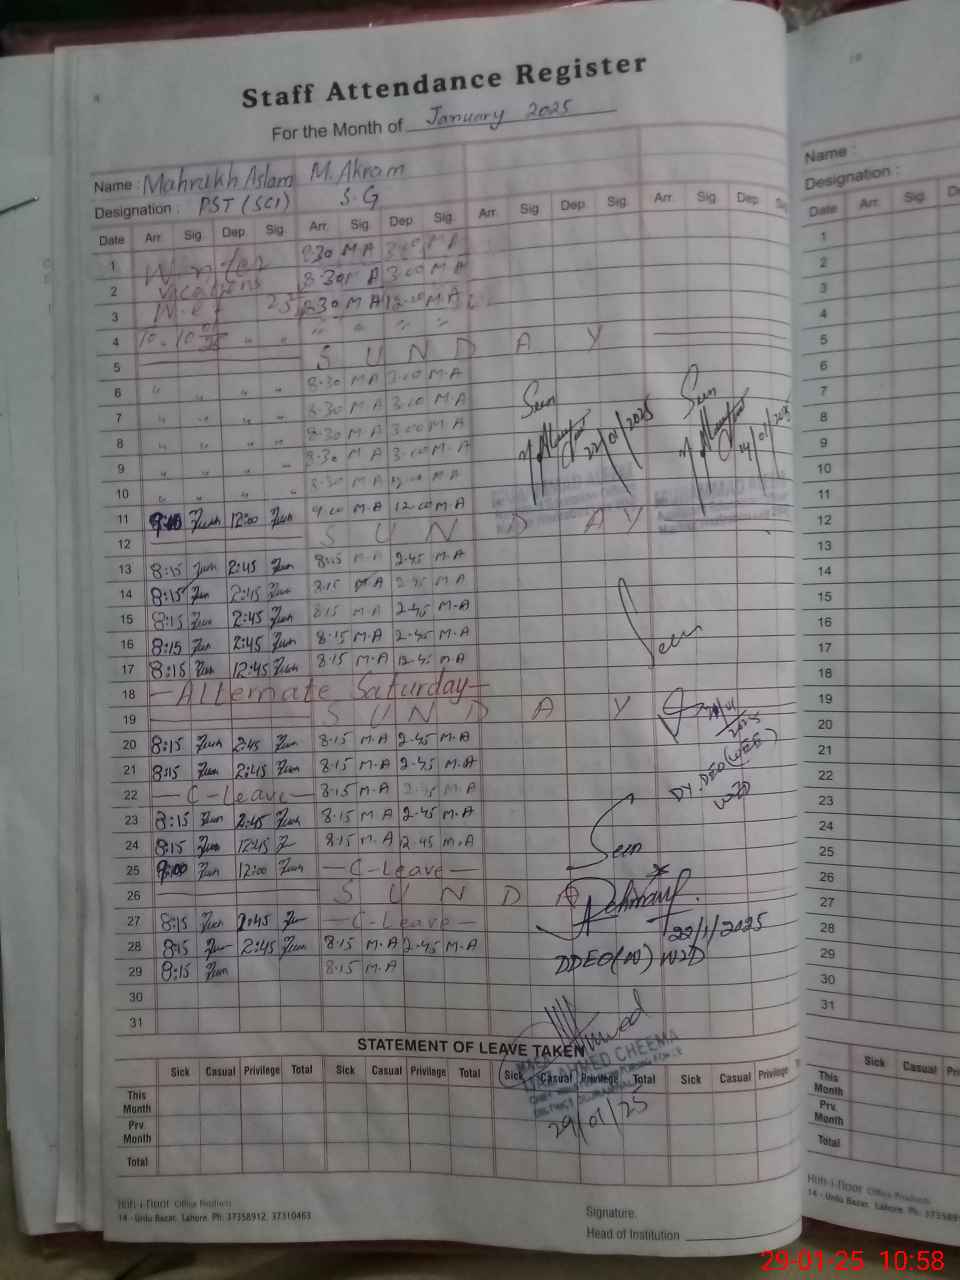 Staff Attendance Register
For the Month of January 2025
Name : Mahrukh Aslam M. Akrom
Designation : PST (SCI) S.G
Date Arr. Sig. Dep. Sig. Arr. Sig. Dep. Sig. Arr. Sig. Dep. Sig. Arr. Sig. Dep.
1 Winter 8.30 M A 3.00 M A
2 vacations 8.30 M A 3.00 M A
3 8.30 M A 12.00 M A
4 " " " " " "
5 S U N D A Y
6 " " " " 8.30 M A 3.00 M.A
7 " " " " 8.30 M A 3.00 M.A
8 " " " " 8.30 M A 3.00 M.A
9 " " " " 8.30 M A 3.00 M.A
10 " " " " 8.30 M A 12.00 M A
11 12:00 9.00 M A 12.00 M.A
12 S U N D A Y
13 8:15 2:45 8:15 M.A 2.45 M.A
14 8:15 2:45 8.15 A 2.45 M.A
15 8:15 2:45 8.15 M.A 2.45 M.A
16 8:15 2:45 8.15 M.A 2.45 M.A
17 8:15 12:45 8.15 M.A 12.45 M.A
18 — Alternate Saturday —
19 S U N D A Y
20 8:15 2:45 8.15 M.A 2.45 M.A
21 8:15 2:45 8.15 M.A 2.45 M.A
22 — C-Leave — 8.15 M.A 2.45 M.A
23 8:15 2:45 8.15 M.A 2.45 M.A
24 8:15 12:45 8.15 M.A 12.45 M.A
25 9:00 12:00 — C-Leave —
26 S U N D A
27 8:15 2:45 — C-Leave —
28 8:15 2:45 8.15 M.A 2.45 M.A
29 8:15 8.15 M.A
30
31
Seen
22/01/2025
Seen
14/01/2025
Seen
DY. DEO (WEE)
WZD
Seen
22/1/2025
DDEO(W) WZD
AHMED CHEEMA
29/01/25
STATEMENT OF LEAVE TAKEN
Sick Casual Privilege Total Sick Casual Privilege Total Sick Casual Privilege Total Sick Casual Privilege
This Month
Prv. Month
Total
Office Products
14 - Urdu Bazar, Lahore. Ph: 37358912, 37310463
Signature.
Head of Institution
Name :
Designation :
Date Arr. Sig.
1
2
3
4
5
6
7
8
9
10
11
12
13
14
15
16
17
18
19
20
21
22
23
24
25
26
27
28
29
30
31
Sick Casual
This Month
Prv. Month
Total
Office Products
14 - Urdu Bazar, Lahore. Ph:
29-01-25 10:58